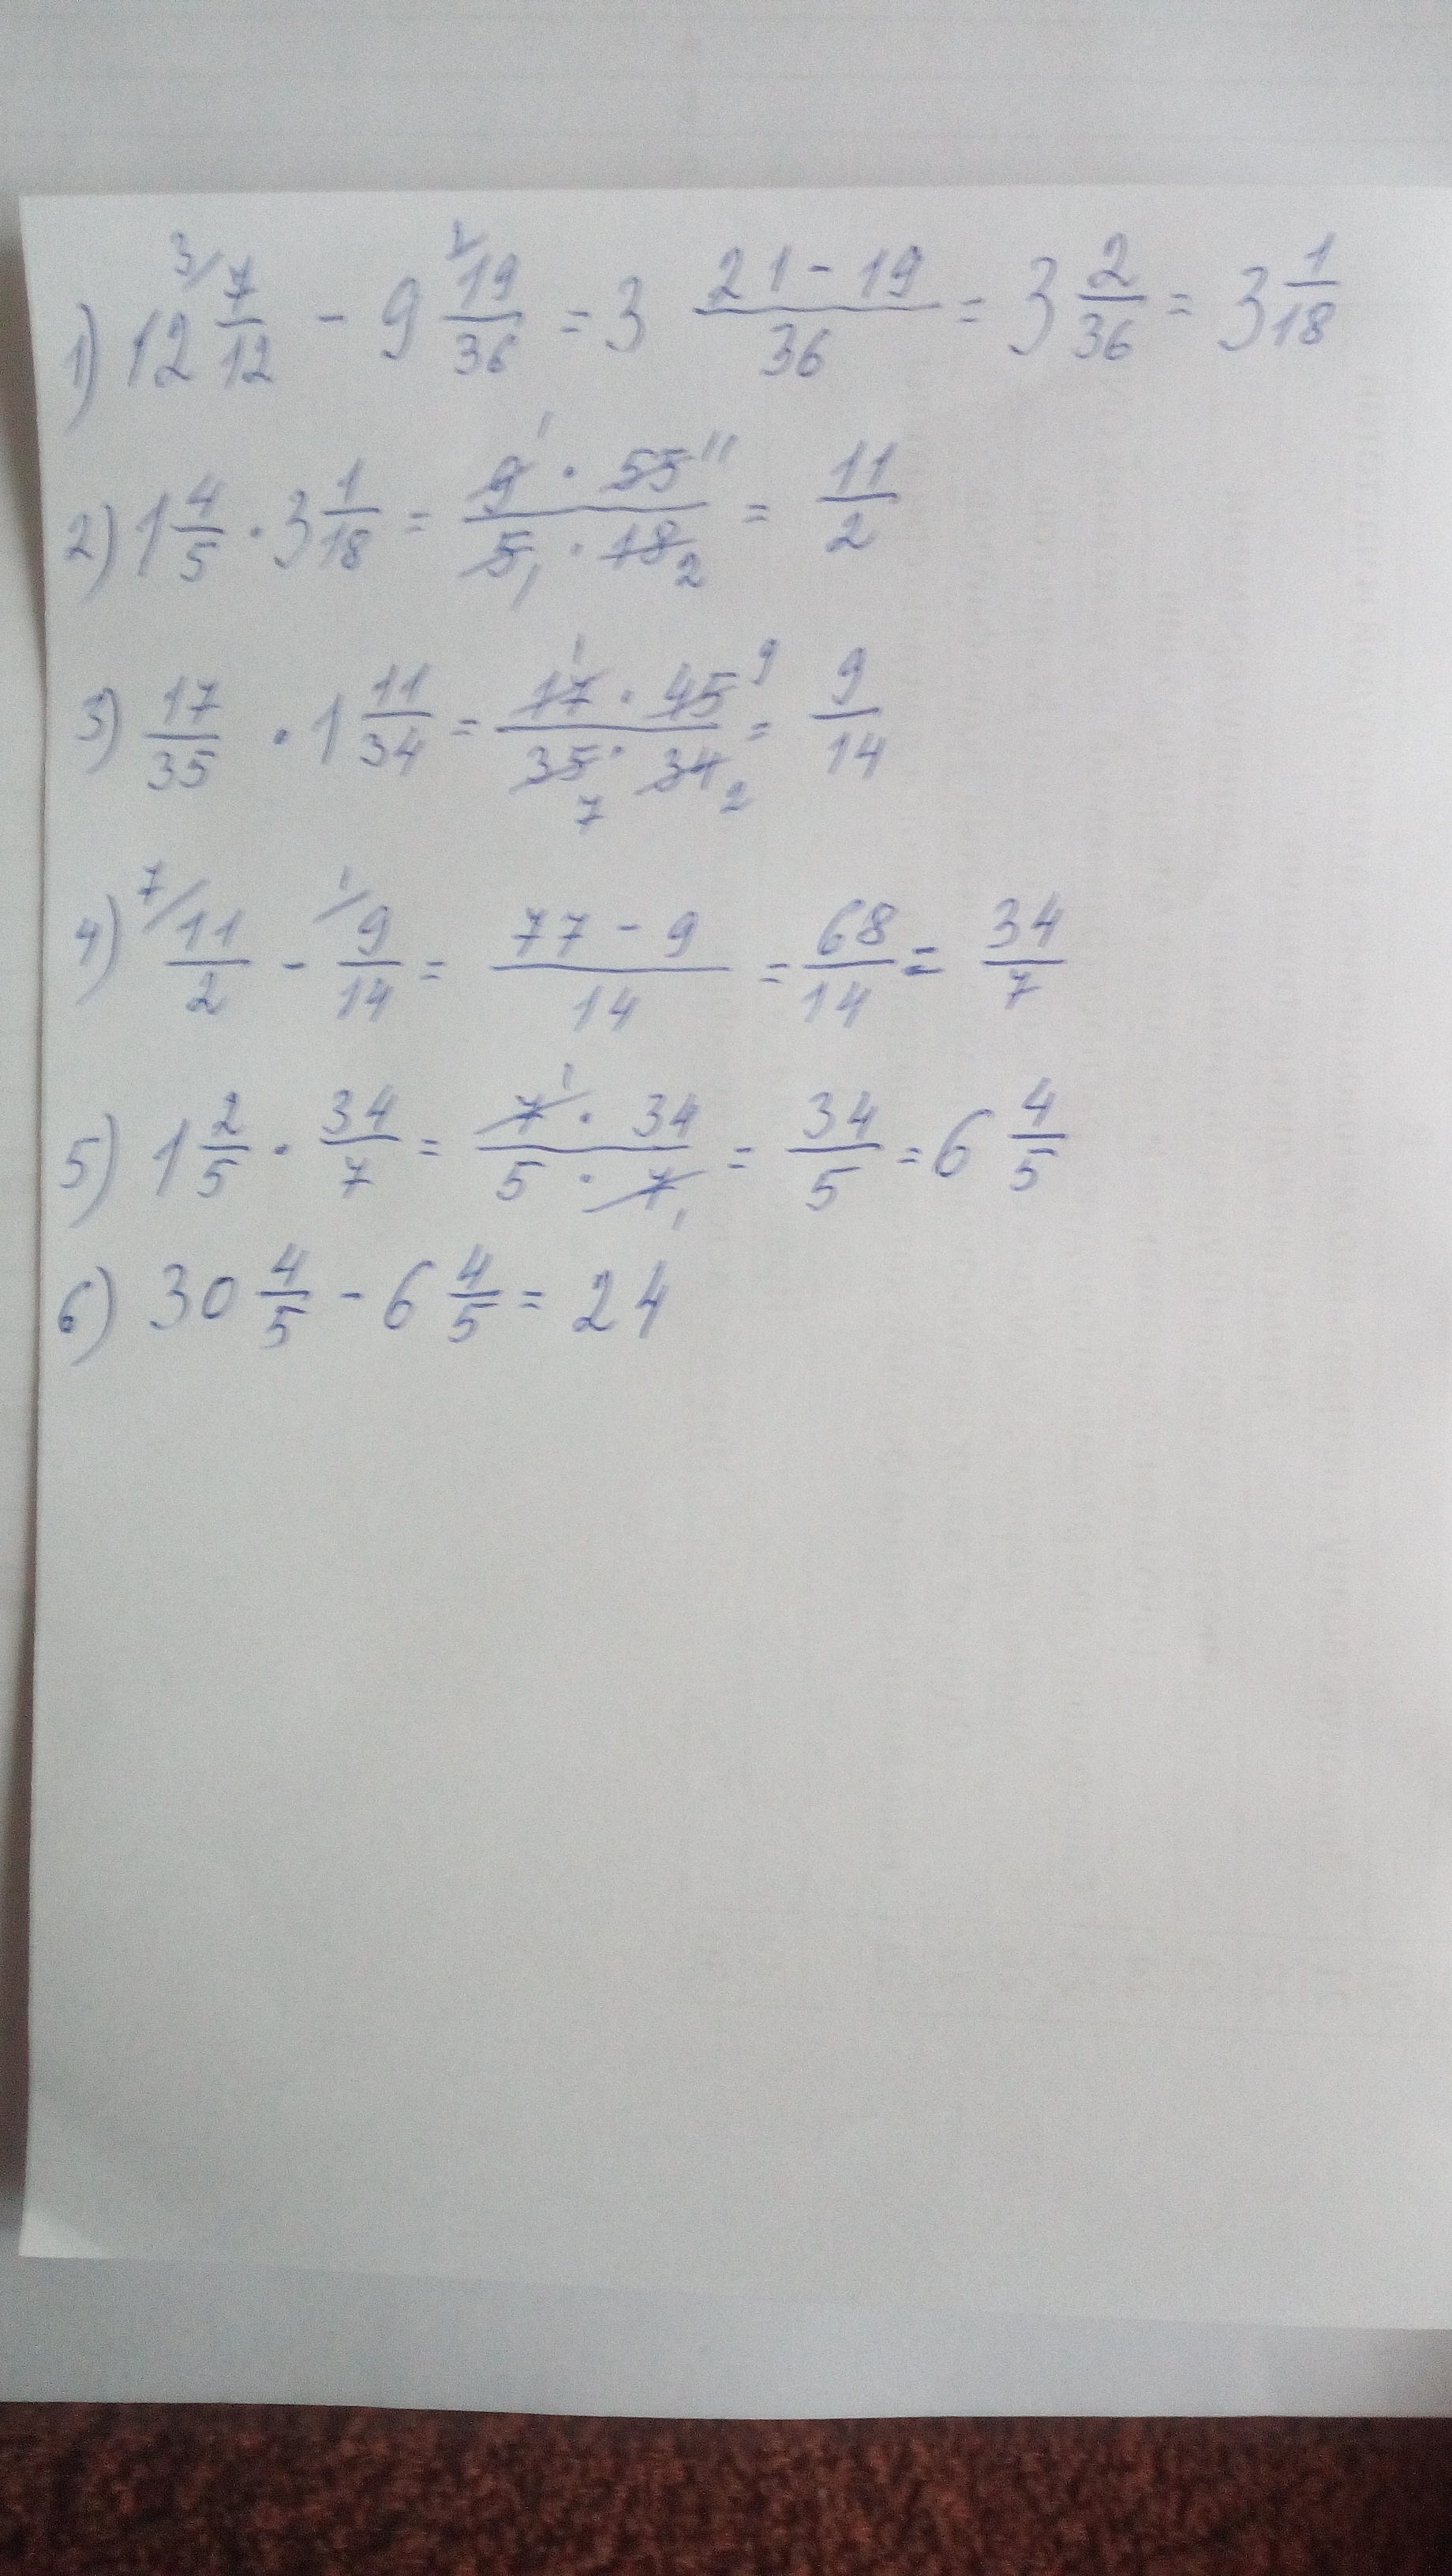 1) 12 7/12 - 9 19/36 = 3 (21-19)/36 = 3 2/36 = 3 1/18
2) 1 4/5 · 3 1/18 = (9 · 55)/(5 · 18) = 11/2
3) 17/35 · 1 11/34 = (17 · 45)/(35 · 34) = 9/14
4) 11/2 - 9/14 = (77 - 9)/14 = 68/14 = 34/7
5) 1 2/5 · 34/7 = (7 · 34)/(5 · 7) = 34/5 = 6 4/5
6) 30 4/5 - 6 4/5 = 24